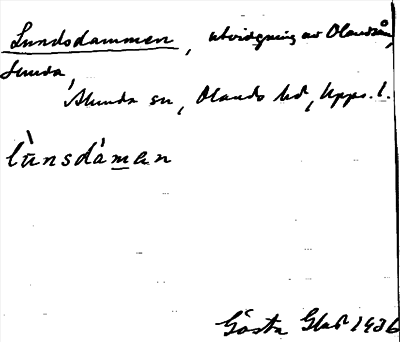 Lundsdammen, utvidgning av Olandsån,
Lunda,
Alunda sn, Olands hd, Upps. l.
lùnsdám̲an
Gösta Glas 1936